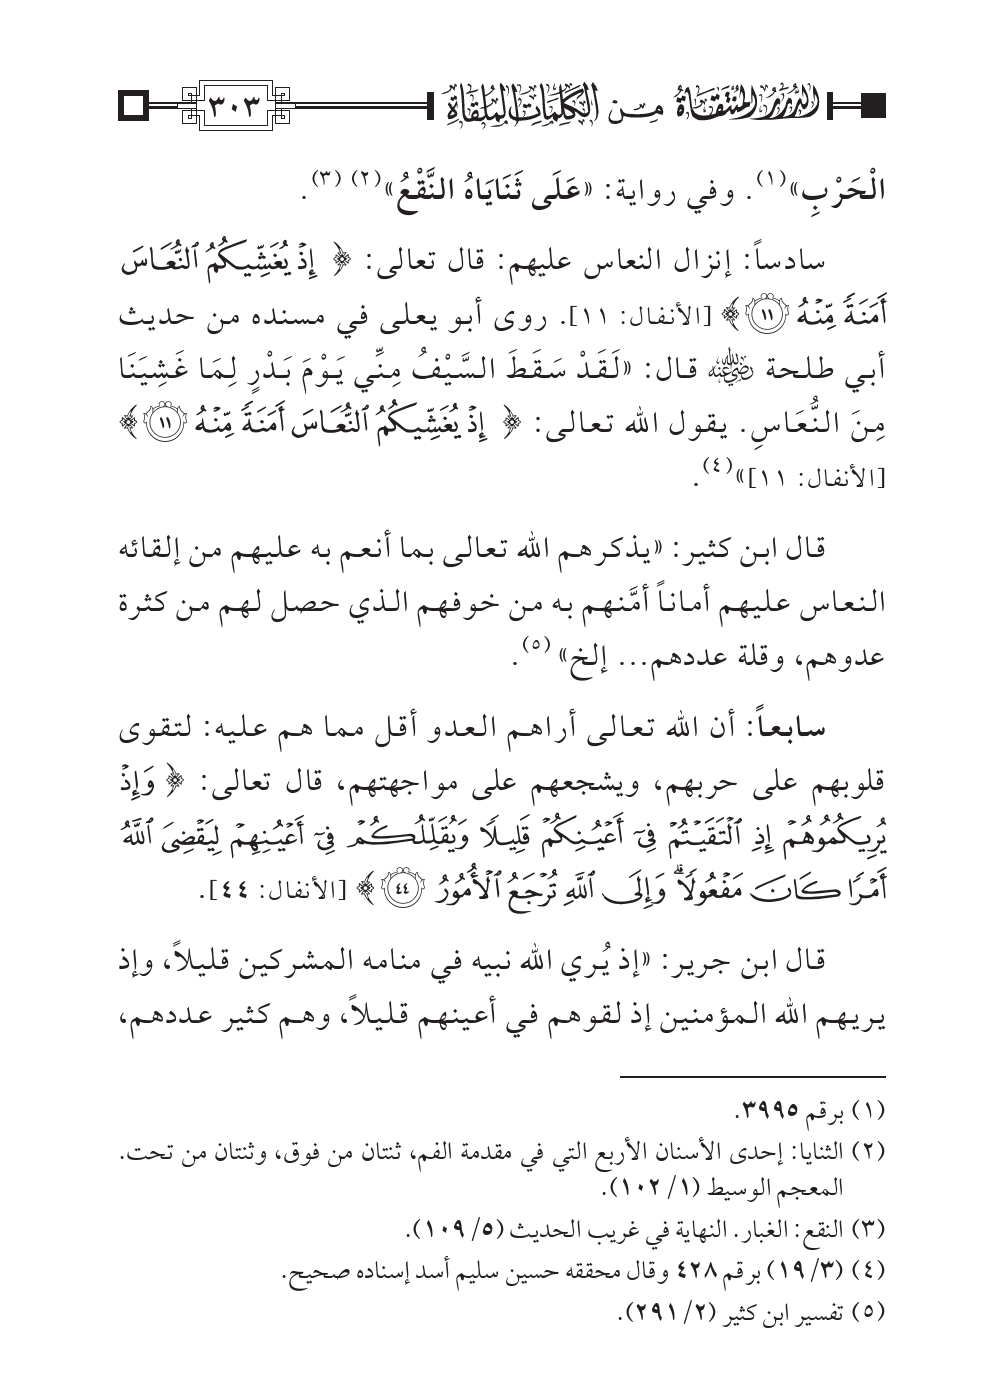 الدرر المنتقاة من الكلمات الملقاة ٣٠٣
الْحَرْبِ»(١). وفي رواية: «عَلَى ثَنَايَاهُ النَّقْعُ»(٢) (٣).
سادساً: إنزال النعاس عليهم: قال تعالى: ﴿ إِذْ يُغَشِّيكُمُ ٱلنُّعَاسَ
أَمَنَةً مِّنْهُ ١١ ﴾ [الأنفال: ١١]. روى أبو يعلى في مسنده من حديث
أبي طلحة رضي الله عنه قال: «لَقَدْ سَقَطَ السَّيْفُ مِنِّي يَوْمَ بَدْرٍ لِمَا غَشِيَنَا
مِنَ النُّعَاسِ. يقول الله تعالى: ﴿ إِذْ يُغَشِّيكُمُ ٱلنُّعَاسَ أَمَنَةً مِّنْهُ ١١ ﴾
[الأنفال: ١١]»(٤).
قال ابن كثير: «يذكرهم الله تعالى بما أنعم به عليهم من إلقائه
النعاس عليهم أماناً أمَّنهم به من خوفهم الذي حصل لهم من كثرة
عدوهم، وقلة عددهم... إلخ» (٥).
سابعاً: أن الله تعالى أراهم العدو أقل مما هم عليه: لتقوى
قلوبهم على حربهم، ويشجعهم على مواجهتهم، قال تعالى: ﴿ وَإِذْ
يُرِيكُمُوهُمْ إِذِ ٱلْتَقَيْتُمْ فِىٓ أَعْيُنِكُمْ قَلِيلًا وَيُقَلِّلُكُمْ فِىٓ أَعْيُنِهِمْ لِيَقْضِىَ ٱللَّهُ
أَمْرًا كَانَ مَفْعُولًا ۗ وَإِلَى ٱللَّهِ تُرْجَعُ ٱلْأُمُورُ ٤٤ ﴾ [الأنفال: ٤٤].
قال ابن جرير: «إذ يُري الله نبيه في منامه المشركين قليلاً، وإذ
يريهم الله المؤمنين إذ لقوهم في أعينهم قليلاً، وهم كثير عددهم،
(١) برقم ٣٩٩٥.
(٢) الثنايا: إحدى الأسنان الأربع التي في مقدمة الفم، ثنتان من فوق، وثنتان من تحت.
المعجم الوسيط (١/ ١٠٢).
(٣) النقع: الغبار. النهاية في غريب الحديث (٥/ ١٠٩).
(٤) (٣/ ١٩) برقم ٤٢٨ وقال محققه حسين سليم أسد إسناده صحيح.
(٥) تفسير ابن كثير (٢/ ٢٩١).